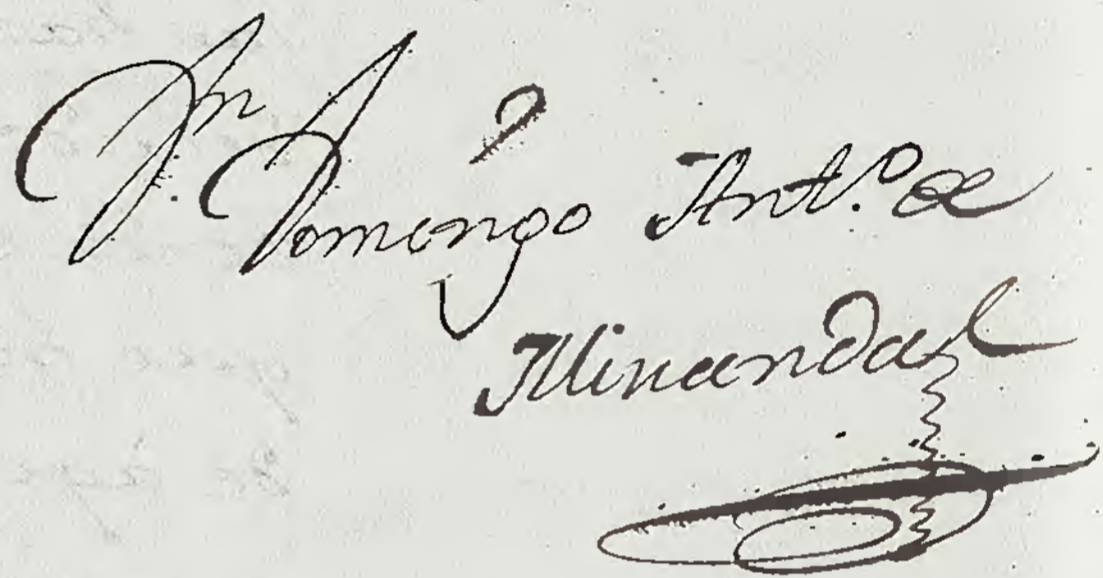 Dn. Domingo Ant.º de
Miranda